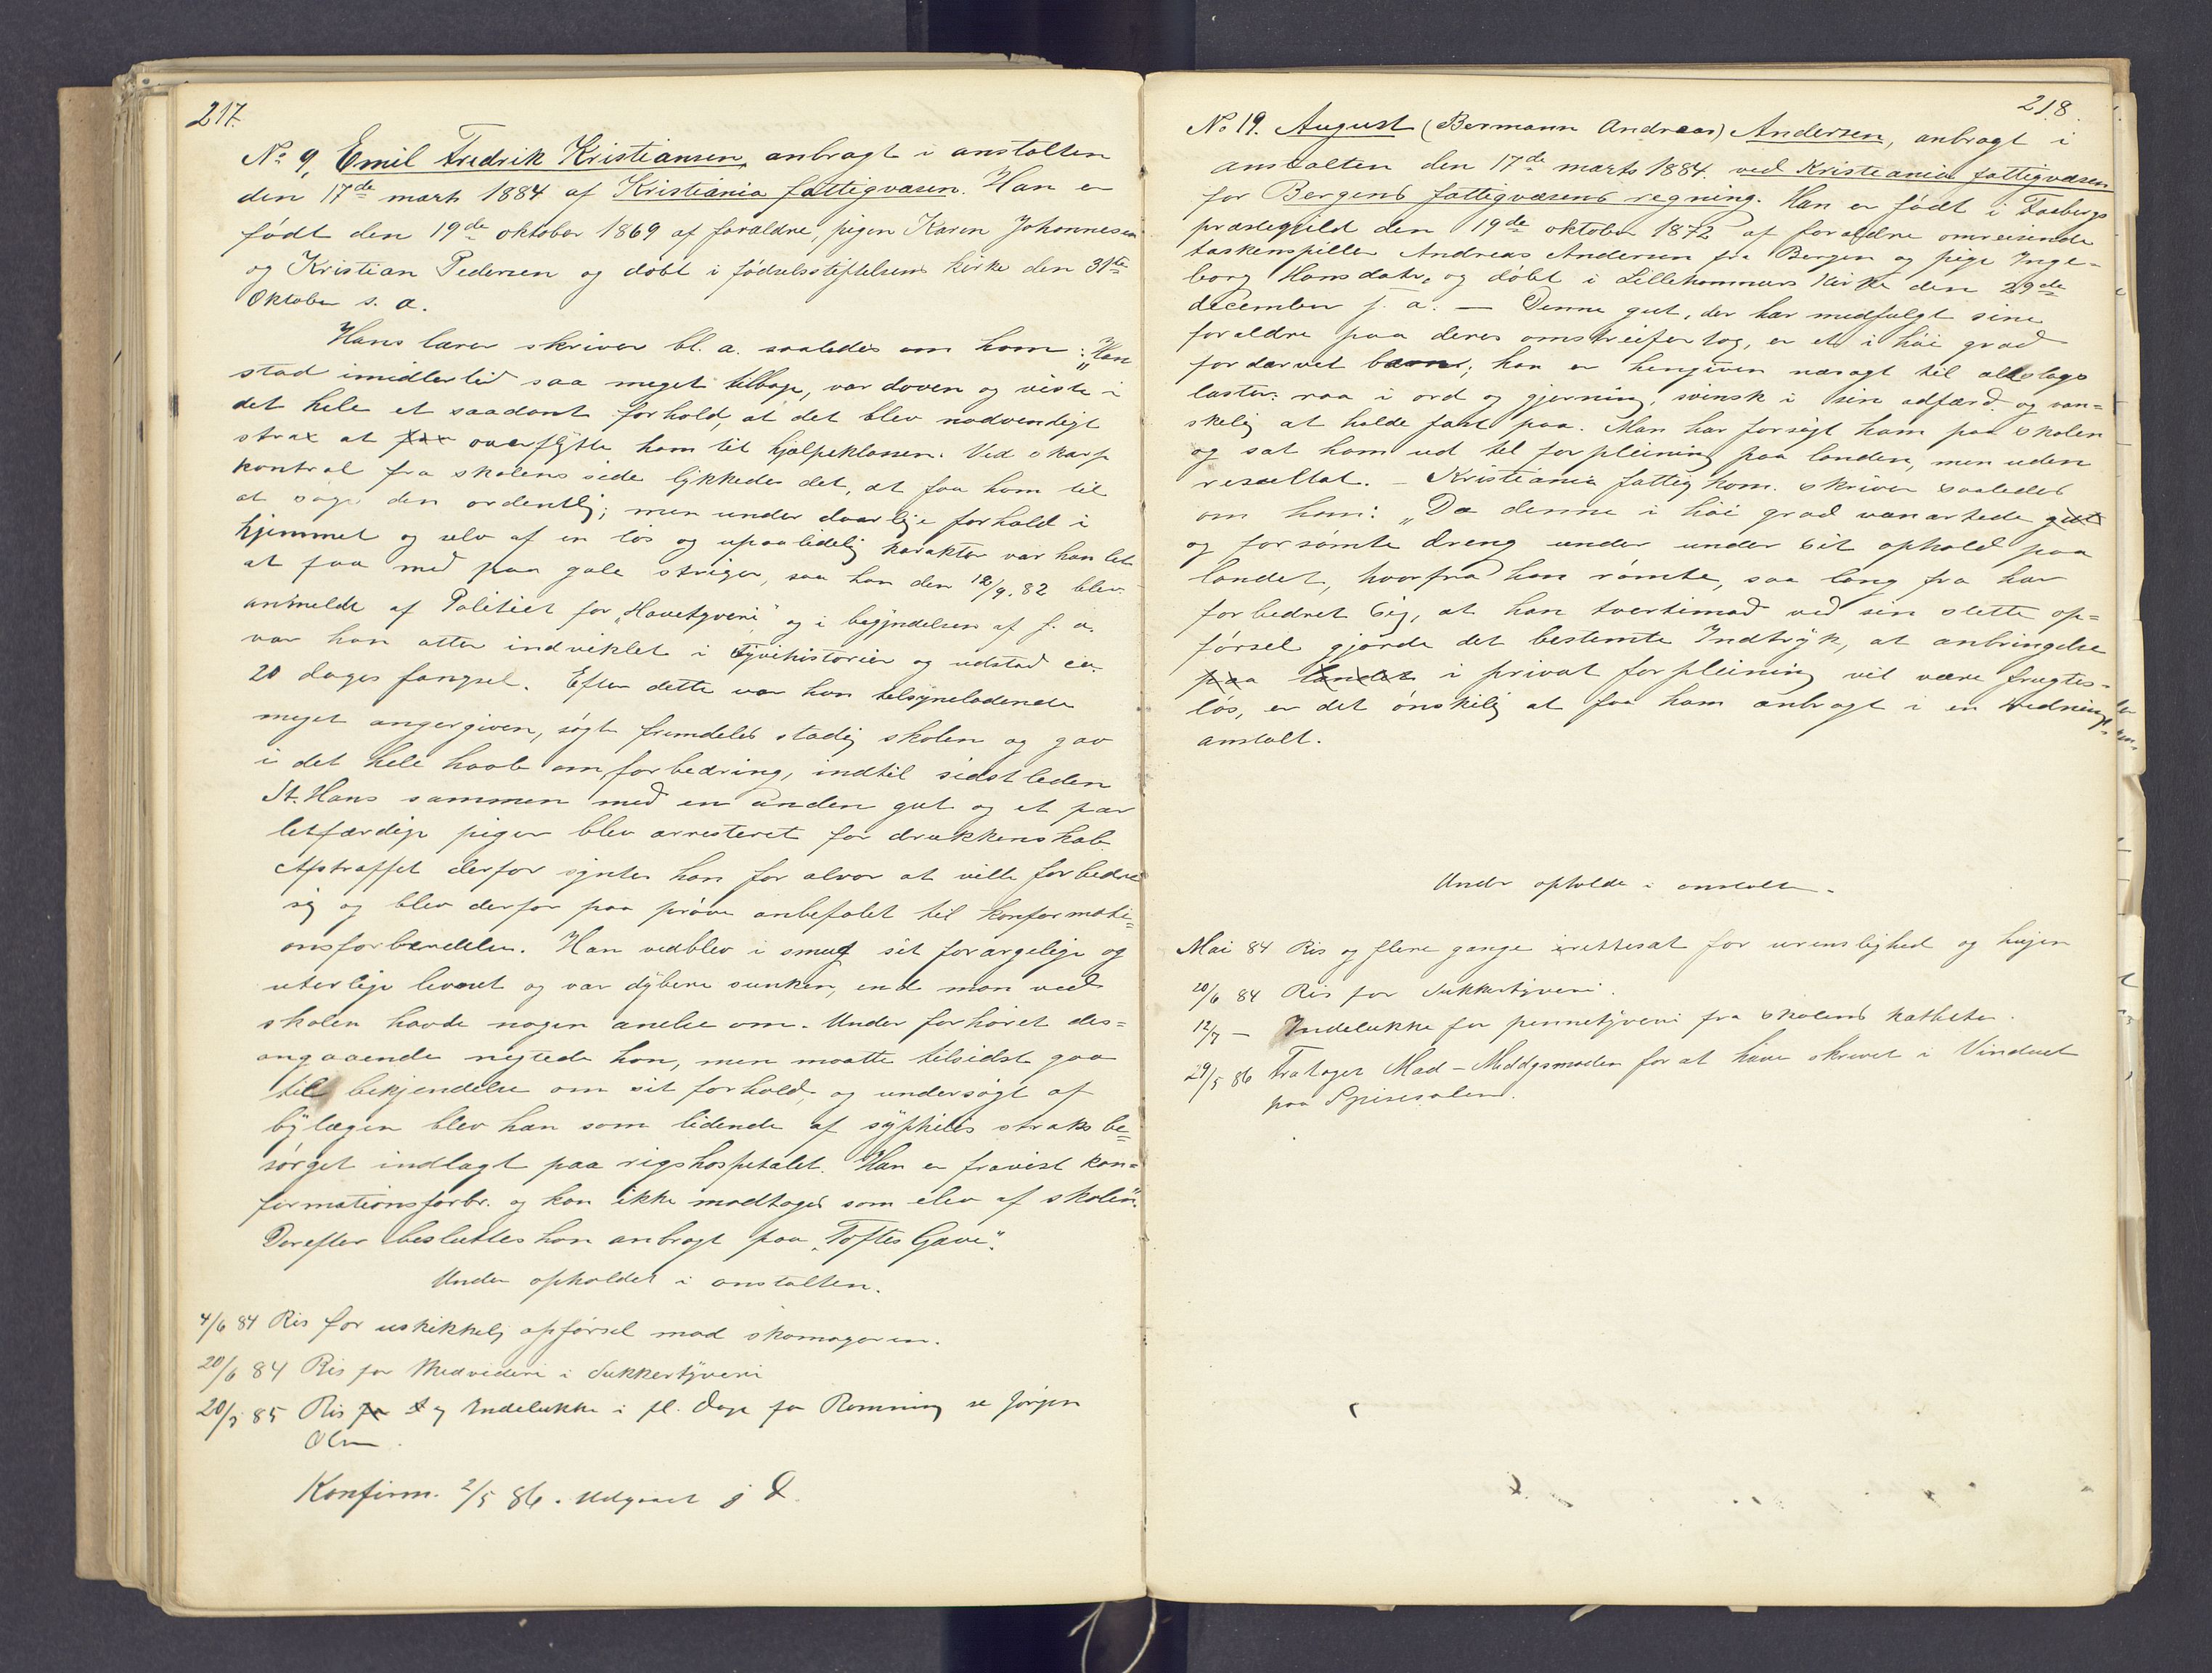 217.
No 9, Emil Fredrik Kristiansen, anbragt i anstalten
den 17de marts 1884 af Kristiania fattigvæsen. Han er
født den 19de oktober 1869 af forældre, pigen Karen Johannesen
og Kristian Pedersen og døbt i fødselsstiftelsens kirke den 31te
Oktober s. a.
Hans lærer skriver bl. a. saaledes om ham: „Han
stod imidlertid saa meget tilbage, var doven og viste i
det hele et saadant forhold, at det blev nødvendigt
strax at overflytte ham til hjælpeklassen. Ved skarp
kontrol fra skolens side lykkedes det, at faa ham til
at søge den ordentlig; men under daarlige forhold i
hjemmet og selv af en løs og upaalidelig karakter var han let
at faa med paa gale striger, saa han den 12/9. 82 blev
anmeldt af Politiet for „Havetyveri" og i begyndelsen af f. a.
var han atter indviklet i Tyvehistorier og udstod ca.
20 dages fængsel. Efter dette var han tilsyneladende
meget angergiven, søgte fremdeles stadig skolen og gav
i det hele haab om forbedring, indtil sidstleden
St. Hans sammen med en anden gut og et par
letfærdige piger blev arresteret for drukkenskab.
Afstraffet derfor syntes han for alvor at ville forbedre
sig og blev derfor paa prøve anbefalet til konfirmati=
onsforberedelse. Han vedblev i smug sit forargelige og
uterlige levnet og var dybere sunken, end man ved
skolen havde nogen anelse om. Under forhøret des=
angaaende negtede han, men maatte tilsidst gaa
til bekjendelse om sit forhold, og undersøgt af
bylægen blev han som lidende af syphilis straks be=
sørget indlagt paa rigshospitalet. Han er fravist kon=
firmationsforbr. og kan ikke modtages som elev af skolen".
Derefter besluttes han anbragt paa „Toftes Gave".
Under opholdet i anstalten.
4/6 84 Ris for uskikkelig opførsel mod skomageren.
20/6 84 Ris for Medvideri i Sukkertyveri
20/5 85 Ris og Indelukke i fl. Dage for Rømning se Jørgen
Olsen.
Konfirm. 2/5 86. Udgaaet
218.
No 19. August (Bermann Andreas) Andersen, anbragt i
anstalten den 17de marts 1884. ved Kristiania fattigvæsen
for Bergens fattigvæsens regning. Han er født i Faabergs
præstegjeld den 19de oktober 1872 af forældre omreisende
taskenspiller Andreas Andersen fra Bergen og pige Inge-
borg Hansdatr. og døbt i Lillehammers Kirke den 29de
december s. a. — Denne gut, der har medfulgt sine
forældre paa deres omstreifertog, er et i høi grad
fordærvet barn; han er hengiven næragt til alleslags
laster: raa i ord og gjerning, svinsk i sin adfærd og van=
skelig at holde fast paa. Man har forsøgt ham paa skolen
og sat ham ud til forpleining paa landen, men uden
resultat. – Kristiania fattigkom. skriver saaledes
om ham: „Da denne i høi grad vanartede gut
og forsømte dreng under under sit ophold paa
landet, hvorfra han rømte, saa lang fra har
forbedret sig, at han tvertimod ved sin slette op=
førsel gjorde det bestemte Indtryk, at anbringelse
paa landet i privat forpleining vil være frugtes-
løs, er det ønskelig at faa ham anbragt i en Rednings-
anstalt.
Under opholdet i anstalten.
Mai 84 Ris og flere gange irettesat for urenslighed og hujen
20/6 84 Ris for Sukkertyveri.
12/7 – Indelukke for pennetyveri fra skolens kathete.
29/5 86 Frataget Mad – Middagsmaden for at have skrevet i Vinduet
paa Spisesalen.